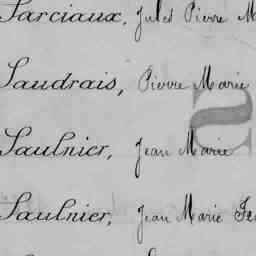 Sarciaux, Jules Pierre M
Saudrais, Pierre Marie
Saulnier, Jean Marie
Saulnier, Jean Marie